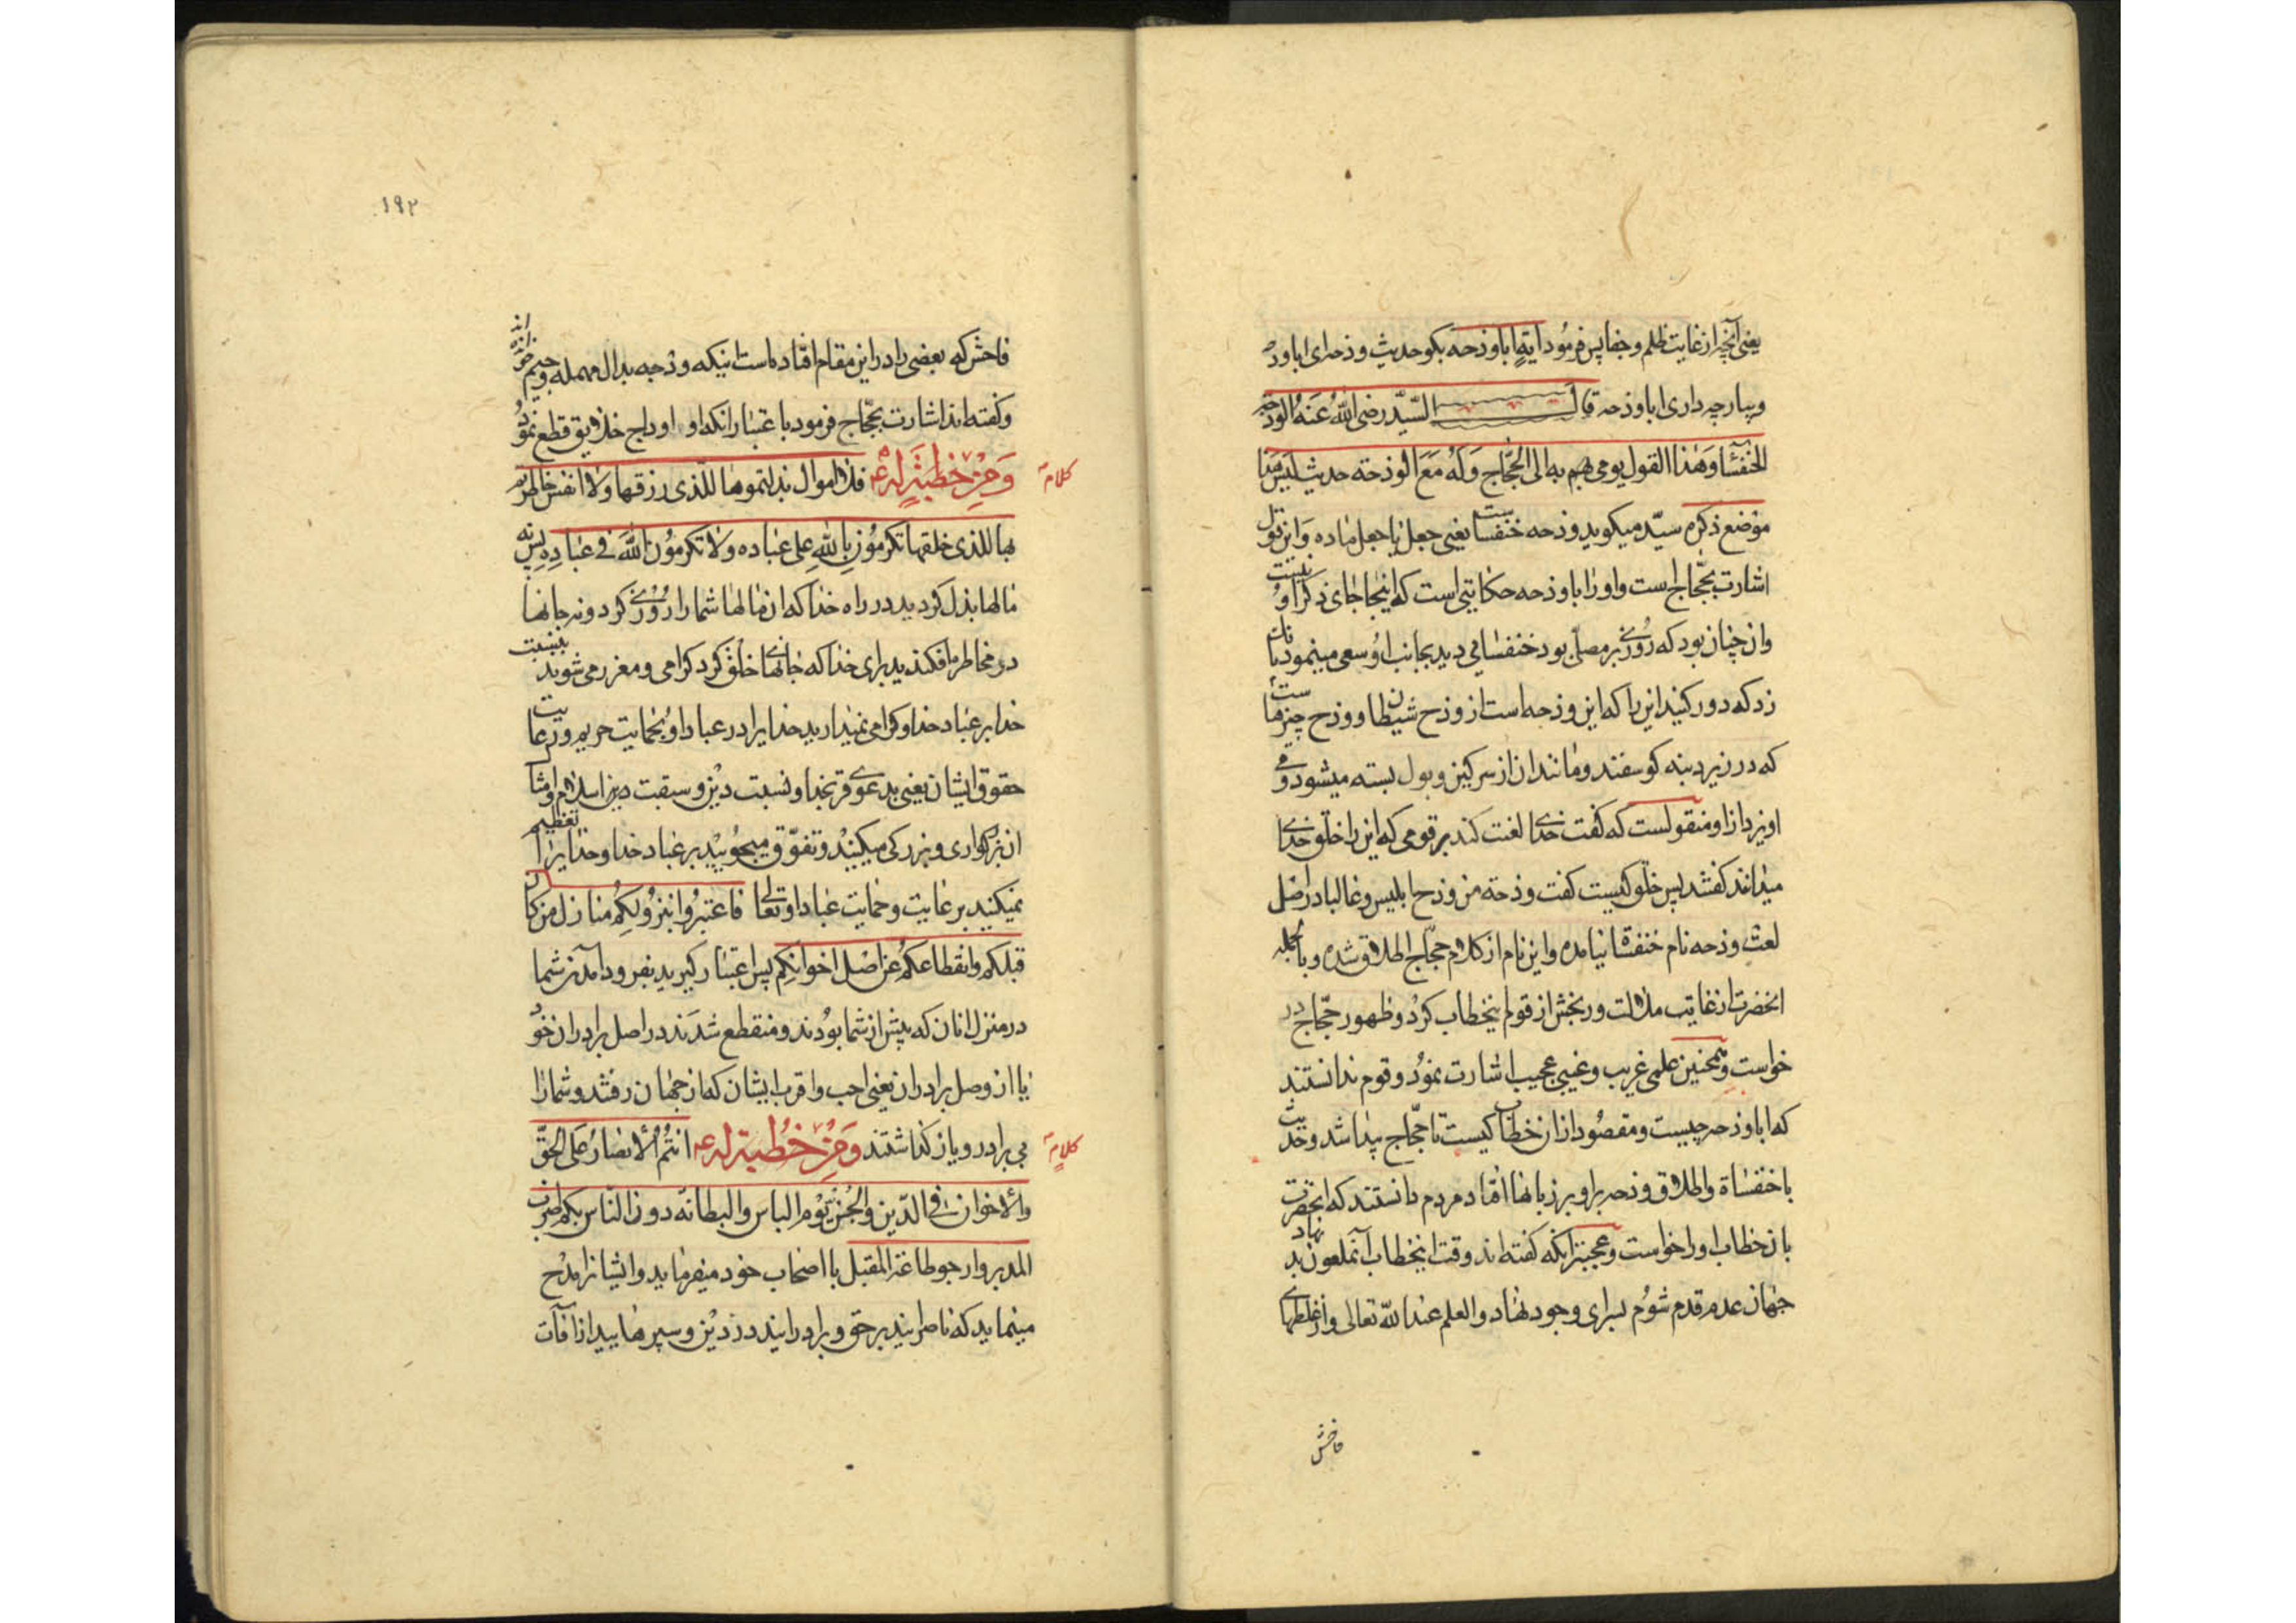 یعنی آنچه از غایت ظلم و جفا پس فرمود ایهٍ ابا وذحه بکو حدیث وذحه ای ابا وذحه
و بیار چه داری ابا وذحه قال السّید رضی اللّٰه عنه الوذحه
الخنفساء و هذا القول یومی به الی الحجّاج وَ لَهُ مَعَ الوذحة حدیث لیس هذا
موضع ذکره سیّد میکوید وذحه خنفساست یعنی جعل یا جعل ماده و این قول
اشارت بحجّاج است و او را با وذحه حکایتی است که اینجا جای ذکر او نیست
و ان چنان بود که روزی بر مصلّی بود خنفسا می دید بجانب او سعی مینمود بانک
زد که دور کنید این را که این وذحه است از وذح شیطان و وذح چیزیست
که در زیر دنبه کوسفند و مانند ان از سرکین و بول بسته میشود و می
اویزد از او منقولست که کفت خدای لعنت کند بر قومی که این را خلق خدای
میدانند کفتند پس خلق کیست کفت وذحة من وذح ابلیس و غالبا در اصل
لعت وذحه نام خنفسا نیامده و این نام از کلام حجّاج اطلاق شده و بالجمله
انحضرت از غایت ملالت و رنجش از قوم اینخطاب کرد و ظهور حجّاج در
خواست و همچنین علمی غریب و غیبی عجیب اشارت نمود و قوم ندانستند
که ابا وذحه چیست و مقصود از ان خطاب کیست تا حجّاج پیدا شد و حدیث
با خنفساة و اطلاق وذحه بر او بر زبانها افتاد مردم دانستند که انحضرت
بان خطاب او را خواست و عجبتر انکه کفته اند وقت اینخطاب آنملعون بد نهاد
جهان عدم قدم شوم بسرای وجود نهاد و العلم عند اللّه تعالی و از غلطهای
فاحش
۱۹۲
فاحش که بعضی را در این مقام افتاده است اینکه ودجه بدال مهمله و جیم خوانده اند
و کفته اند اشارت بحجّاج فرمود باعتبار انکه او اوداج خلایق قطع نمود
کلام
وَ مِنْ خطبَةٍ له ع فلا اموال بذلتموها للّذی رزقها و لا انفس خاطرتم
بها للذی خلقها تکرمُون باللّٰهِ علی عباده و لا تکرمُون اللّٰهَ فی عبادِه پس نه
مالها بذل کردید در راه خدا که ان مالها شما را روزی کرد و نه جانها
در مخاطره افکندید برای خدا که جانها خلق کرد کرامی و معزر می شوید بنسبت
خدا بر عباد خدا و کرامی نمیدارید خدایرا در عباد او بحمایت حریم و رعایت
حقوق ایشان یعنی بدعوی قربخدا و نسبت دین و سبقت دین اسلام و امثال
ان بزرکواری و بزرکی میکنید و تفوّق میجویید بر عباد خدا و خدایرا تعظیم
نمیکنید بر عایت و حمایت عباد او تعالی فاعتبروا بنزولکم منازل من کان
قبلکم و انقطاعکم عن اصل اخوانکم پس اعتبار کیرید بفرود آمدن شما
در منزل انان که پیش از شما بودند و منقطع شدند در اصل برادران خود
یا از وصل برادران یعنی احب و اقرب ایشان که از جهان رفتند و شما را
کلام
بی برادر و یار کذاشتند وَ مِنْ خُطبة له ع انتُم الأنصارُ عَلی الحَقّ
و الأخوان فی الدّین و الجُنن یَوْم الباس و البطانه دون النّاس بکم اضرب
المدبر و ارجو طاعة المقبل با اصحاب خود میفرماید و ایشانرا مدح
مینماید که ناصرانیند بر حق و برادرانیند در دین و سپرهایید از آفات